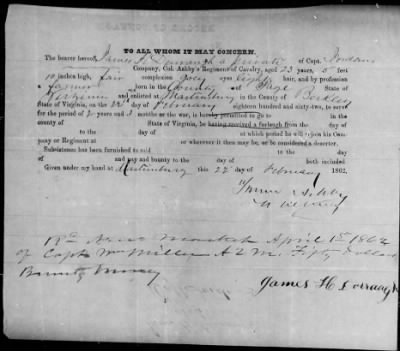 TO ALL WHOM IT MAY CONCERN.
The bearer hereof, James H a private of Capt. Jordan's
Company, Col. Ashby's Regiment of Cavalry, aged 23 years, 5 feet
10 inches high, fair complexion grey eyes light hair, and by profession
a farmer born in the County of Page State of
Virginia and enlisted at Martinsburg in the County of Berkley
State of Virginia, on the 22d day of February eighteen hundred and sixty-two, to serve
for the period of 2 years and 3 months or the war, is hereby permitted to go to in the
county of State of Virginia, he having received a furlough from the day
of to the day of at which period he will rejoin his Com-
pany or Regiment at or wherever it then may be, or be considered a deserter.
Subsistence has been furnished to said to the day
of and pay and bounty to the day of both included
Given under my hand at Martinsburg this 22d day of February 1862.
Turner Ashby
Rcd April 1st 1862
of Capt Wm Miller A Q M Fifty Dollars
Bounty Money
James H